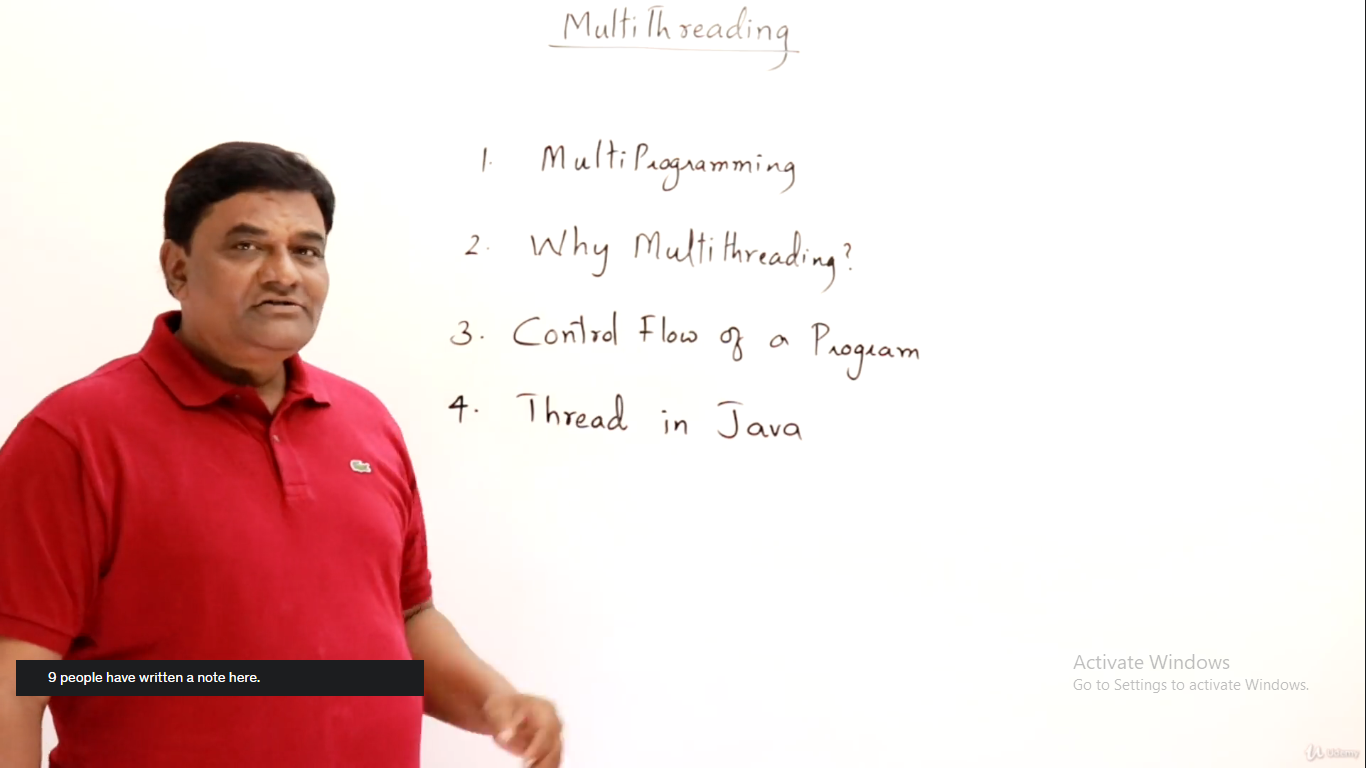 MultiThreading
1. MultiProgramming
2. Why Multithreading?
3. Control Flow of a Program
4. Thread in Java
9 people have written a note here.
Activate Windows
Go to Settings to activate Windows.
Udemy